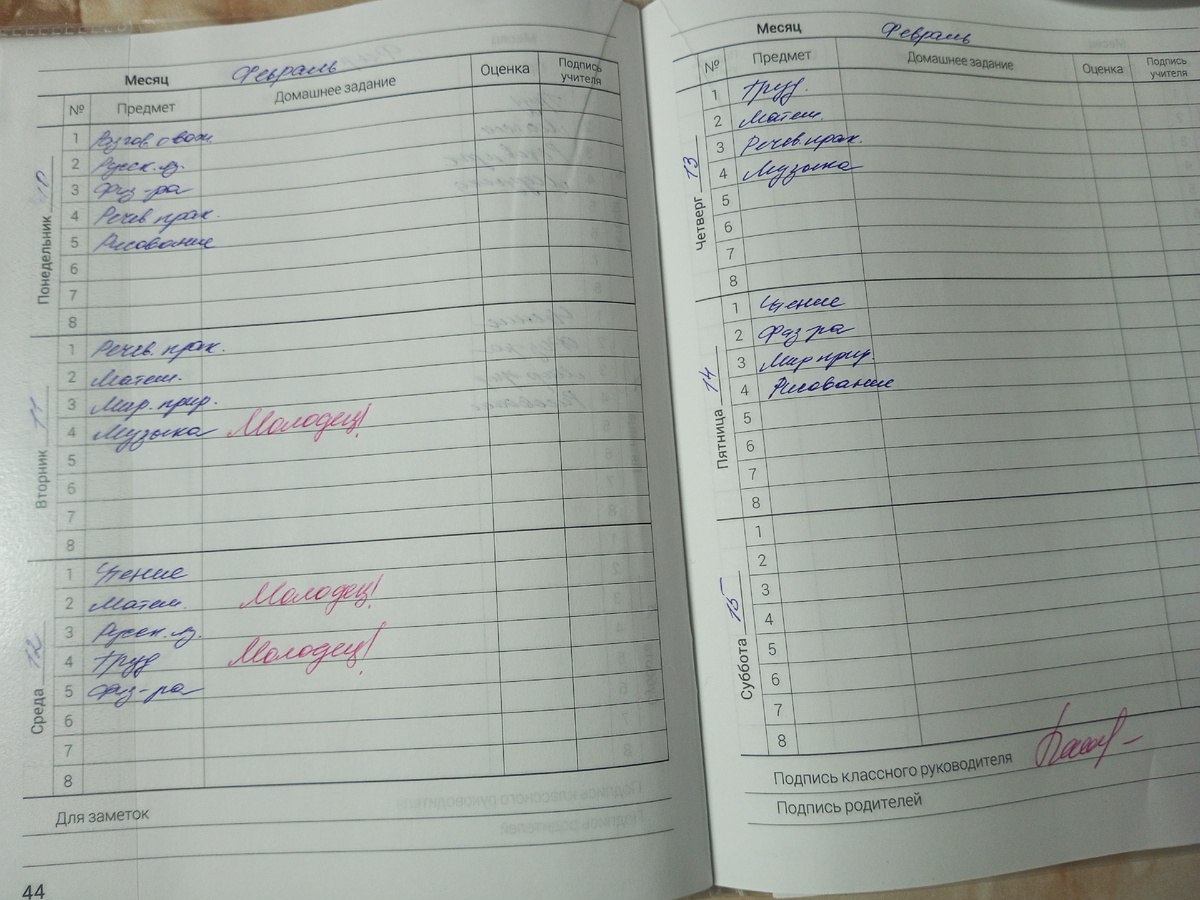 Месяц Февраль
№ Предмет Домашнее задание Оценка Подпись учителя
Понедельник 10
1 Разгов. о важн.
2 Русск. яз.
3 Физ-ра
4 Речев. прак.
5 Рисование
6
7
8
Вторник 11
1 Речев. прак.
2 Матем.
3 Мир. прир.
4 Музыка Молодец!
5
6
7
8
Среда 12
1 Чтение
2 Матем. Молодец!
3 Русск. яз.
4 Труд Молодец!
5 Физ-ра
6
7
8
Для заметок
44
Месяц Февраль
№ Предмет Домашнее задание Оценка Подпись учителя
Четверг 13
1 Труд.
2 Матем.
3 Речев. прак.
4 Музыка
5
6
7
8
Пятница 14
1 Чтение
2 Физ-ра
3 Мир прир.
4 Рисование
5
6
7
8
Суббота 15
1
2
3
4
5
6
7
8
Подпись классного руководителя
Подпись родителей